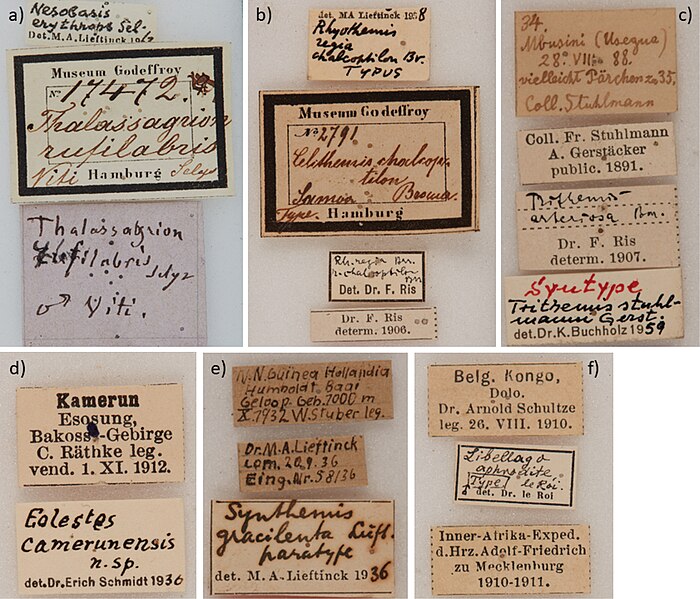 a)
Nesobasis
erythrops Sel.
Det. M.A. Lieftinck 196
Museum Godeffroy
No. 17472.
Thalassagrion
rufilabris
Viti Hamburg Selys
Thalassagrion
rufilabris
Selys
♂ Viti.
b)
det. MA Lieftinck 1938
Rhyothemis
regia
chalcoptilon Br.
TYPUS
Museum Godeffroy
No 2791
Celithemis chalcop-
tilon
Samoa Brauer.
Type. Hamburg
Rh. regia Br.
r. chalcoptilon
Br.
Det. Dr. F. Ris
Dr. F. Ris
determ. 1906.
c)
34.
Mbusini (Usegua)
28. VIII. 88.
vielleicht Pärchen zu 35.
Coll. Stuhlmann
Coll. Fr. Stuhlmann
A. Gerstäcker
public. 1891.
Trithemis
arteriosa Bm.
Dr. F. Ris
determ. 1907.
Syntype
Trithemis stuhl-
manni Gerst.
det. Dr. K. Buchholz 1959
d)
Kamerun
Esosung,
Bakossi-Gebirge
C. Räthke leg.
vend. 1. XI. 1912.
Eolestes
camerunensis
n. sp.
det. Dr. Erich Schmidt 1936
e)
N. N. Guinea Hollandia
Humboldt Baai
Geloop. Geb. 1000 m
X. 1932 W. Stüber leg.
Dr. M. A. Lieftinck
com. 20.9.36
Eing. Nr. 58/36
Synthemis
gracilenta Lieft.
paratype
det. M. A. Lieftinck 1936
f)
Belg. Kongo,
Dolo.
Dr. Arnold Schultze
leg. 26. VIII. 1910.
Libellago
aphrodite
Type le Roi.
♂ det. Dr. le Roi
Inner-Afrika-Exped.
d. Hrz. Adolf-Friedrich
zu Mecklenburg
1910-1911.